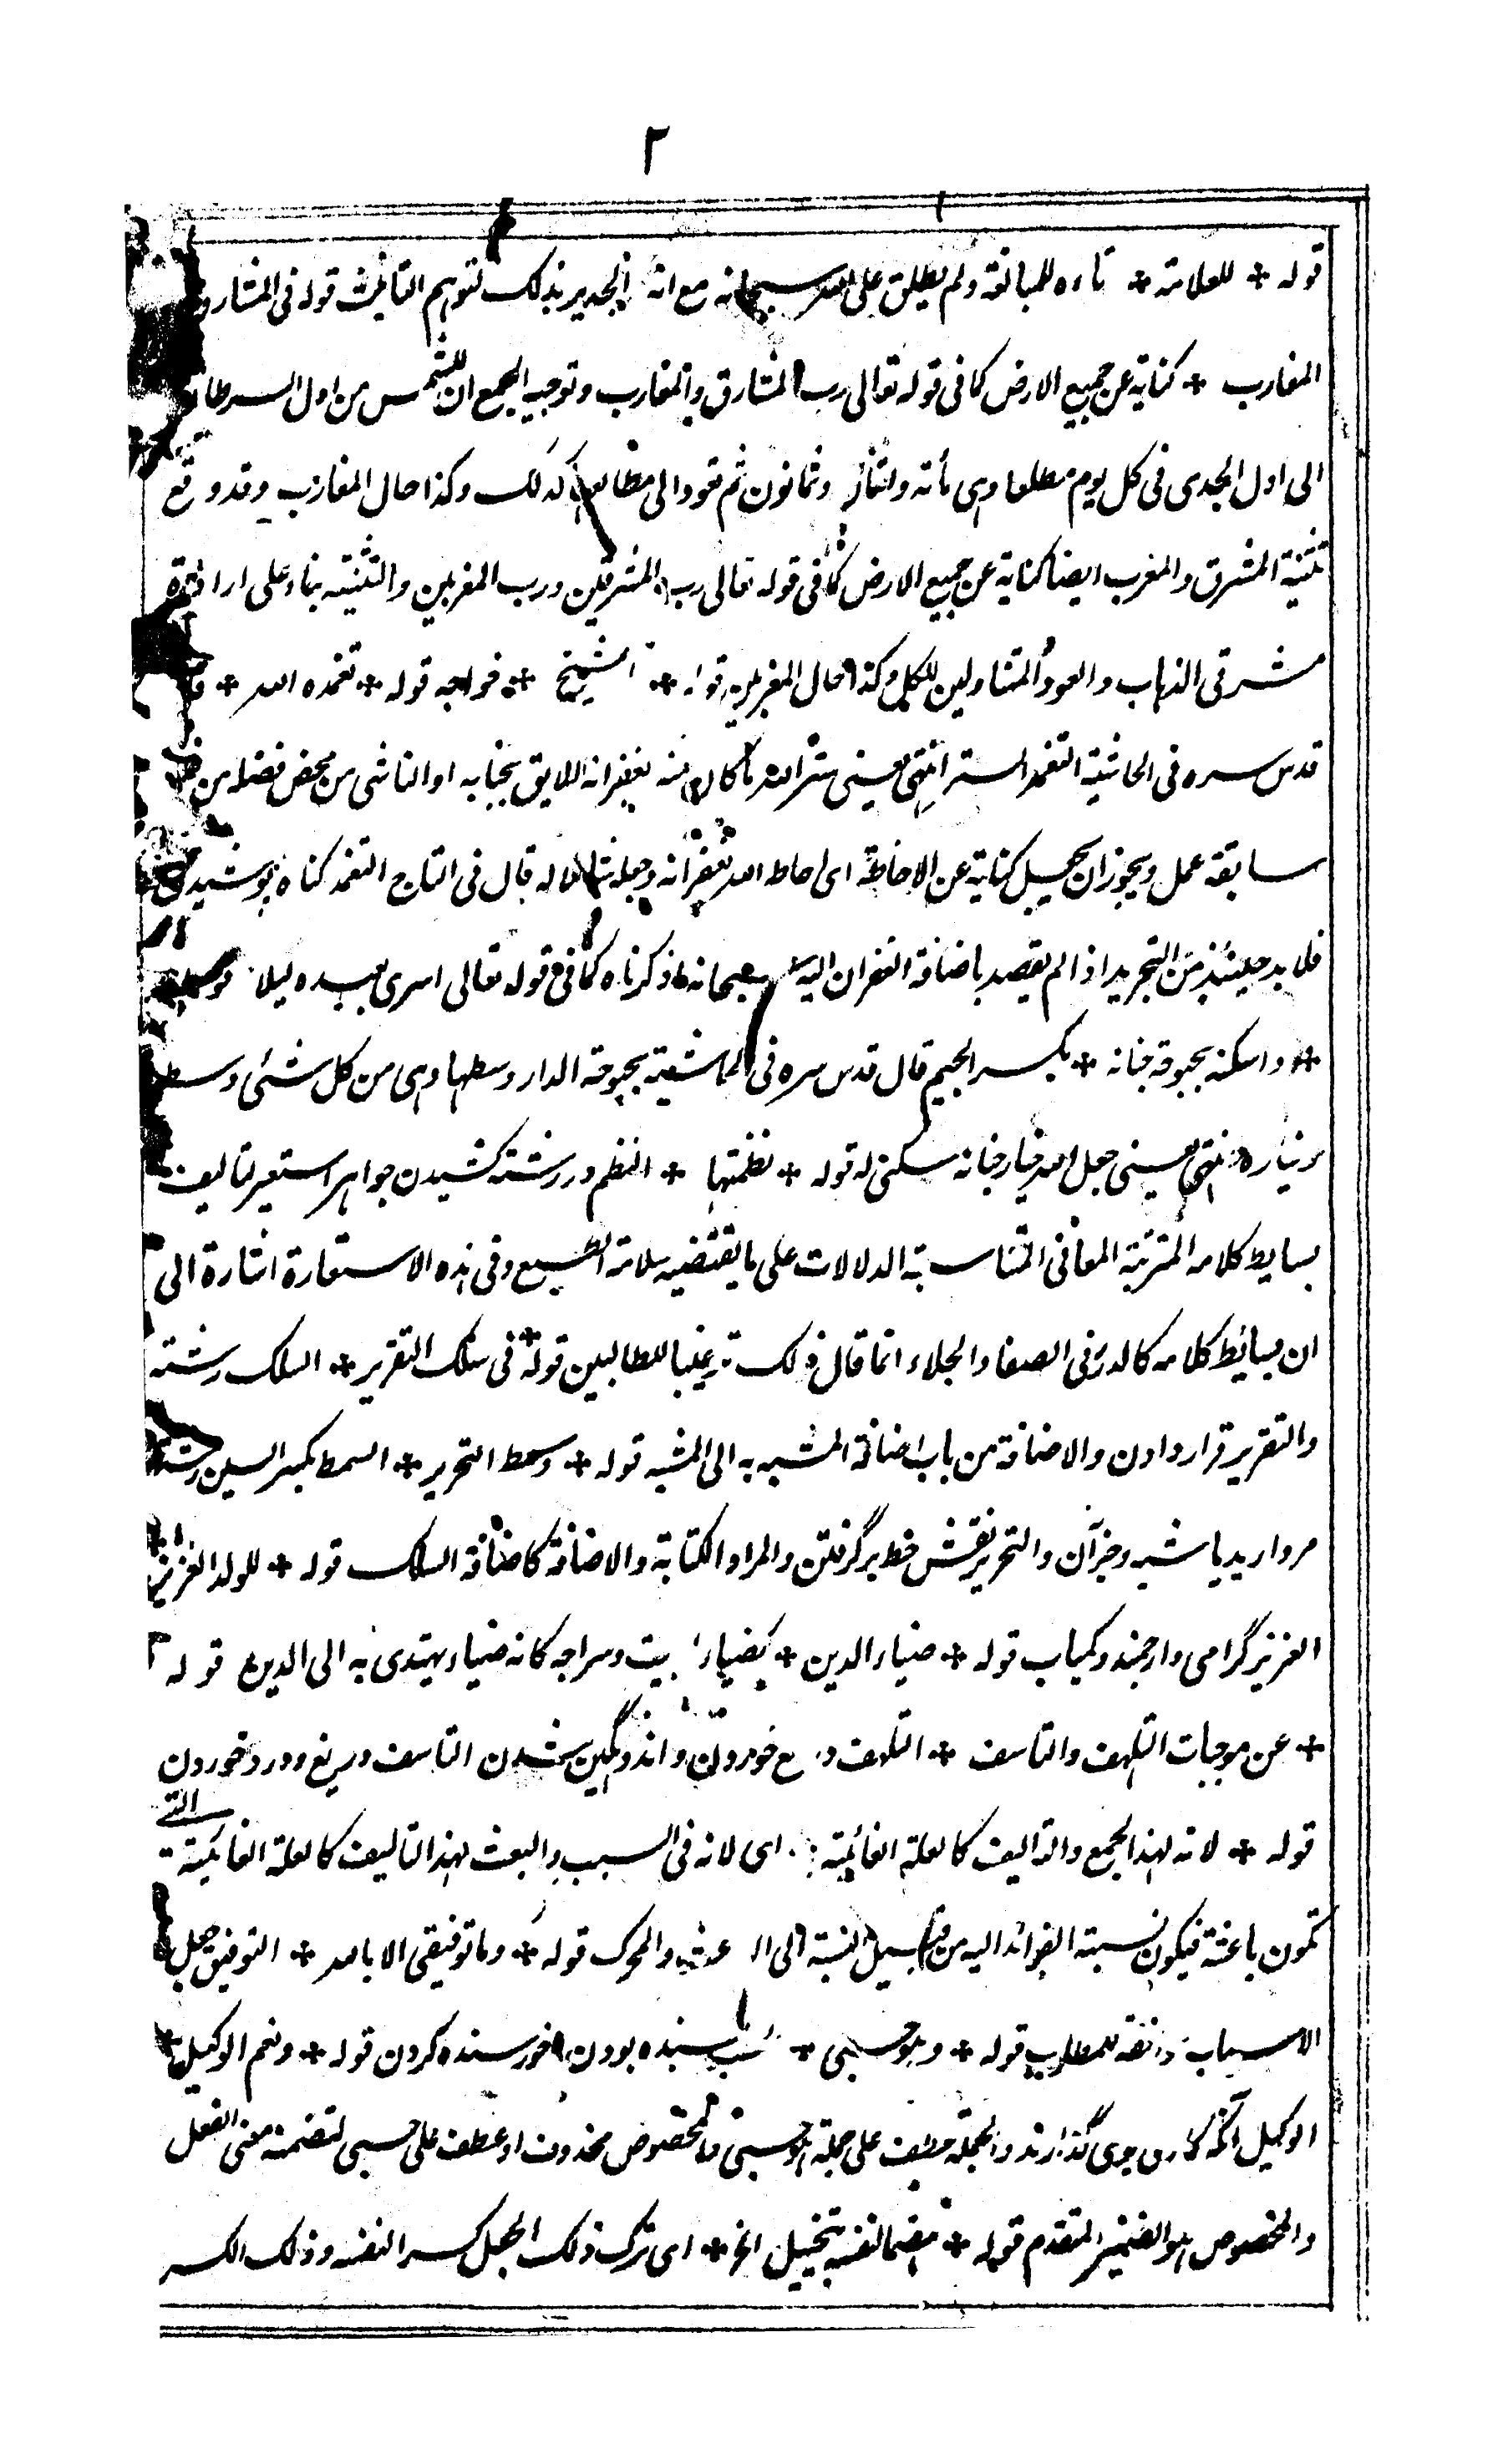 ٢
قوله * للعلامة * تاءه للمبالغة ولم يطلق على الله سبحانه مع انه الجدير بذلك لتوهم التانيث قوله فى المشارق و
المغارب * كناية عن جميع الارض كما فى قوله تعالى رب المشارق والمغارب وتوجيه الجمع ان للشمس من اول السرطان
الى اول الجدى فى كل يوم مطلعا وهى مأته واثنان وثمانون ثم تعود الى مطالعها كذلك وكذا حال المغارب وقد وقع
تثنية المشرق والمغرب ايضا كناية عن جميع الارض كما فى قوله تعالى رب المشرقين ورب المغربين والتثنية بناء على ارادة
مشرقى الذهاب والعود المتناولين للكل وكذا حال المغربين قوله * الشيخ * خواجه قوله * تغمده الله *
قدس سره فى الحاشية التغمد الستر انتهى يعنى ستر الله ما كان منه بغفرانه اللايق بجنابه او الناشى من محض فضله من غير
سابقة عمل ويجوز ان يجعل كناية عن الاحاطة اى احاط الله بغفرانه وجعله شاملا له قال فى التاج التغمد كناه پوشيدن
فلا بد حينئذ من التجريد اذا لم يقصد باضافة الغفران اليه سبحانه ما ذكرناه كما فى قوله تعالى اسرى بعبده ليلا قوله
* واسكنه بحبوحة جنانه * بكسر الجيم قال قدس سره فى الحاشية بحبوحة الدار وسطها وهى من كل شئى وسطه
وخياره انتهى يعنى جعل الله خيار جنانه سكنى له قوله * نظمتها * النظم در رشته كشيدن جواهر استعير لتاليف
بسايط كلامه المترتبة المعانى المتناسبة الدلالات على ما يقتضيه سلامة الطبع وفى هذه الاستعارة اشارة الى
ان بسائط كلامه كالدر فى الصفا والجلاء انما قال ذلك ترغيبا للطالبين قوله فى سلك التقرير * السلك رشته
والتقرير قرار دادن والاضافة من باب اضافة المشبه به الى المشبه قوله * وسمط التحرير * السمط بكسر السين رشته
مرواريد يا شبه وجز آن والتحرير نقش خط بر گرفتن والمراد الكتابة والاضافة كاضافة السلك قوله * للولد العزيز *
العزيز گرامى وارجمند وكمياب قوله * ضياء الدين * كضياء بيت وسراجه كانه ضياء يهتدى به الى الدين قوله
* عن موجبات التلهف والتاسف * التلهف دريغ خوردن واندوهگين شدن التاسف دريغ ودرد خوردن
قوله * لانه لهذا الجمع والتاليف كالعلة الغائية * اى لانه فى السبب والبعث لهذا التاليف كالعلة الغائية التى
تكون باعثة فيكون نسبته الفوائد اليه من قبيل النسبة الى الباعث والمحرك قوله * وما توفيقى الا بالله * التوفيق جعل
الاسباب موافقة للمطلوب قوله * وهو حسبى * بسنده بودن خورسنده كردن قوله * ونعم الوكيل *
الوكيل آنكه كار بوى گذارند والجملة عطف على جملة هو حسبى والمخصوص محذوف او عطف على حسبى لتضمنه معنى الفعل
والمخصوص هو الضمير المتقدم قوله * هضما لنفسه بتخييل الخ * اى ترك ذلك الجعل كسرا لنفسه وذلك الكسر